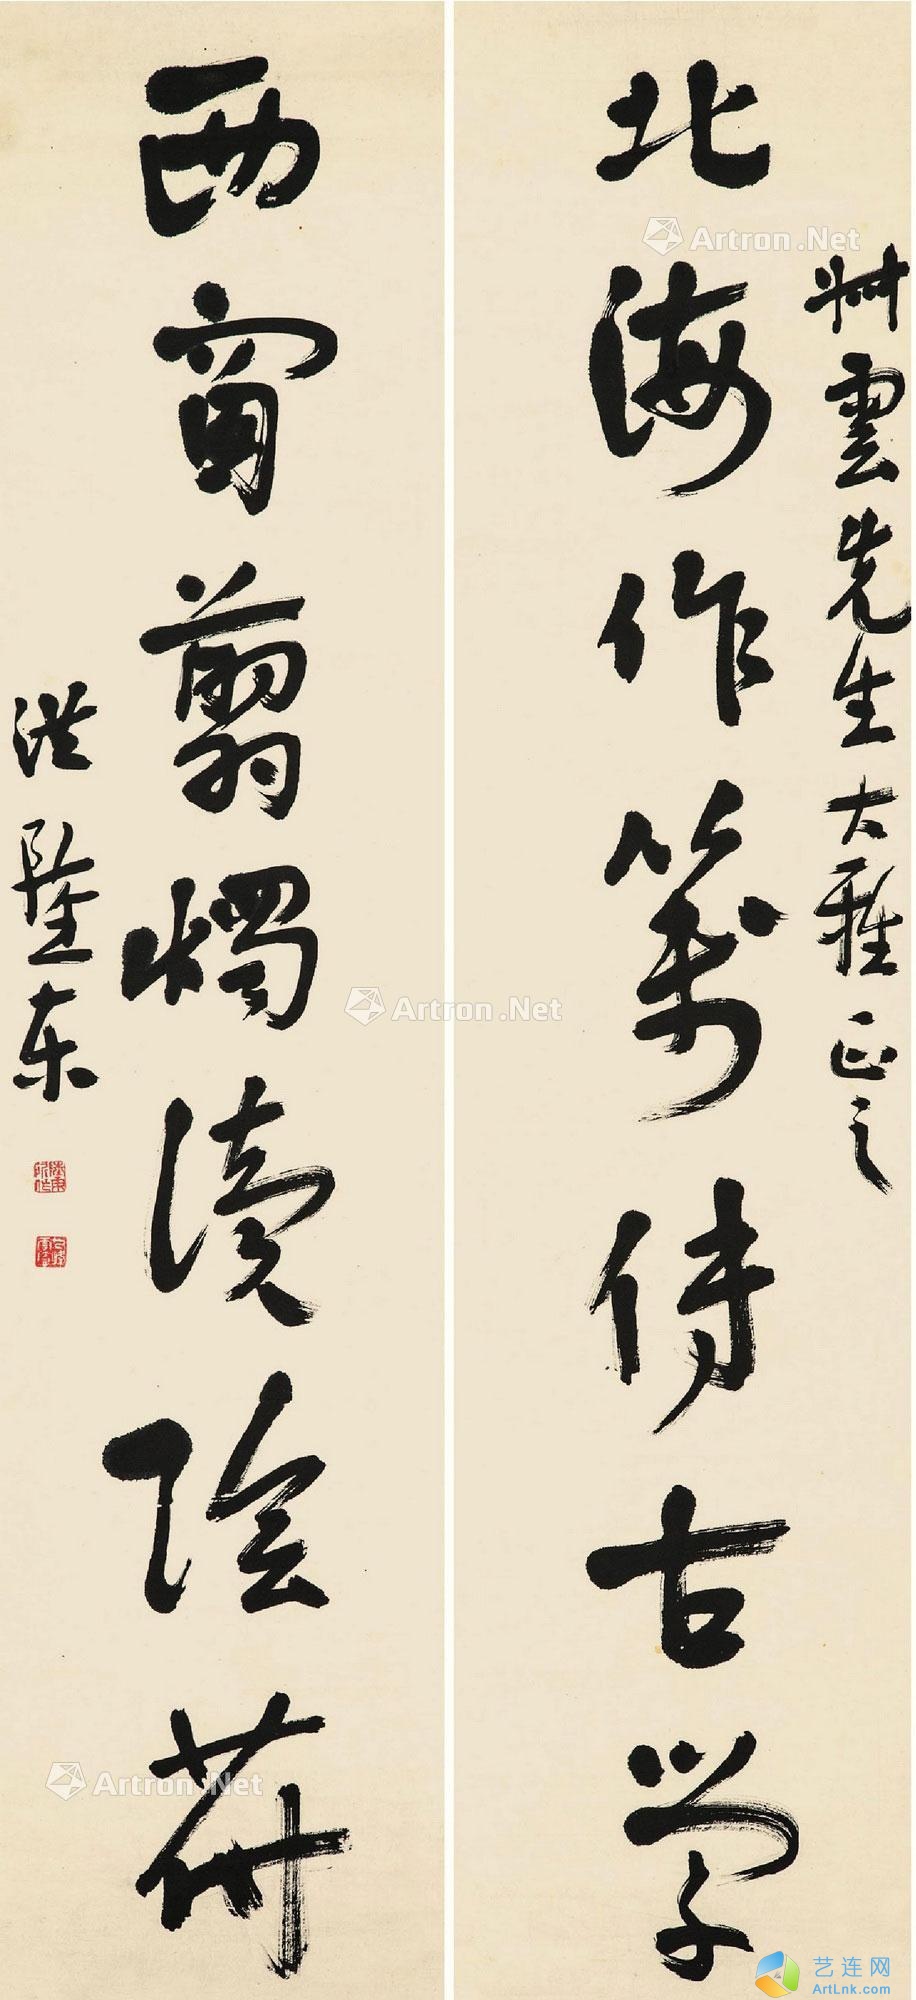 艸雲先生大雅正之
北海作箋傳古學
西窗翦燭讀陰符
洪陸東
Artron.Net
Artron.Net
Artron.Net
艺连网
ArtLnk.Com